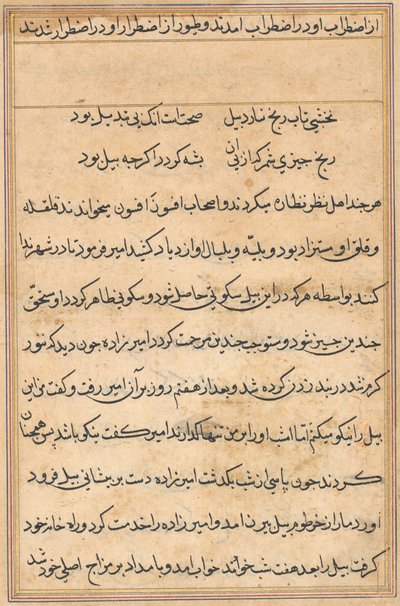 از اضطراب او در اضطراب امدند و طیور از اضطرار او در اضطرار شدند
نخشبی تاب رنج نارد پیل صحت انک بی تبدیل بود
رنج چیزی شمر که از پی ان پشه کردد اکرچه پیل بود
هر چند اهل نظر نظاره میکردند و اصحاب افسون افسون میخواندند قلقله
و قلق او ستزاد بود و بلیّه و بلبال او ازدیاد کنید امیر فرمود تا در شهر ندا
کنند بواسطه هر که در این پیل سکونتی حاصل شود و سکونی ظاهر کردد او مستحق
چندین چیز شود و مستوجب چندین مرحمت کردد امیر زاده چون دید که تنور
کرم شد در بند زدن کرده شد و بعد از هفتم روز بر آن امیر رفت و کفت من این
پیل را نیکو میکنم اما امشب او را بر من تنها کذارند امیر کفت نیکو باشد پس همچنان
کردند چون پاسی از شب بکذشت امیر زاده دست بر پیشانی پیل فرود
اورد مار از خرطوم پیل بیرن امد و امیر زاده را خدمت کرد و راه خانه خود
کرفت پیل را بعد هفت شب خواب امد و بامداد بر مزاج اصلی خود شد